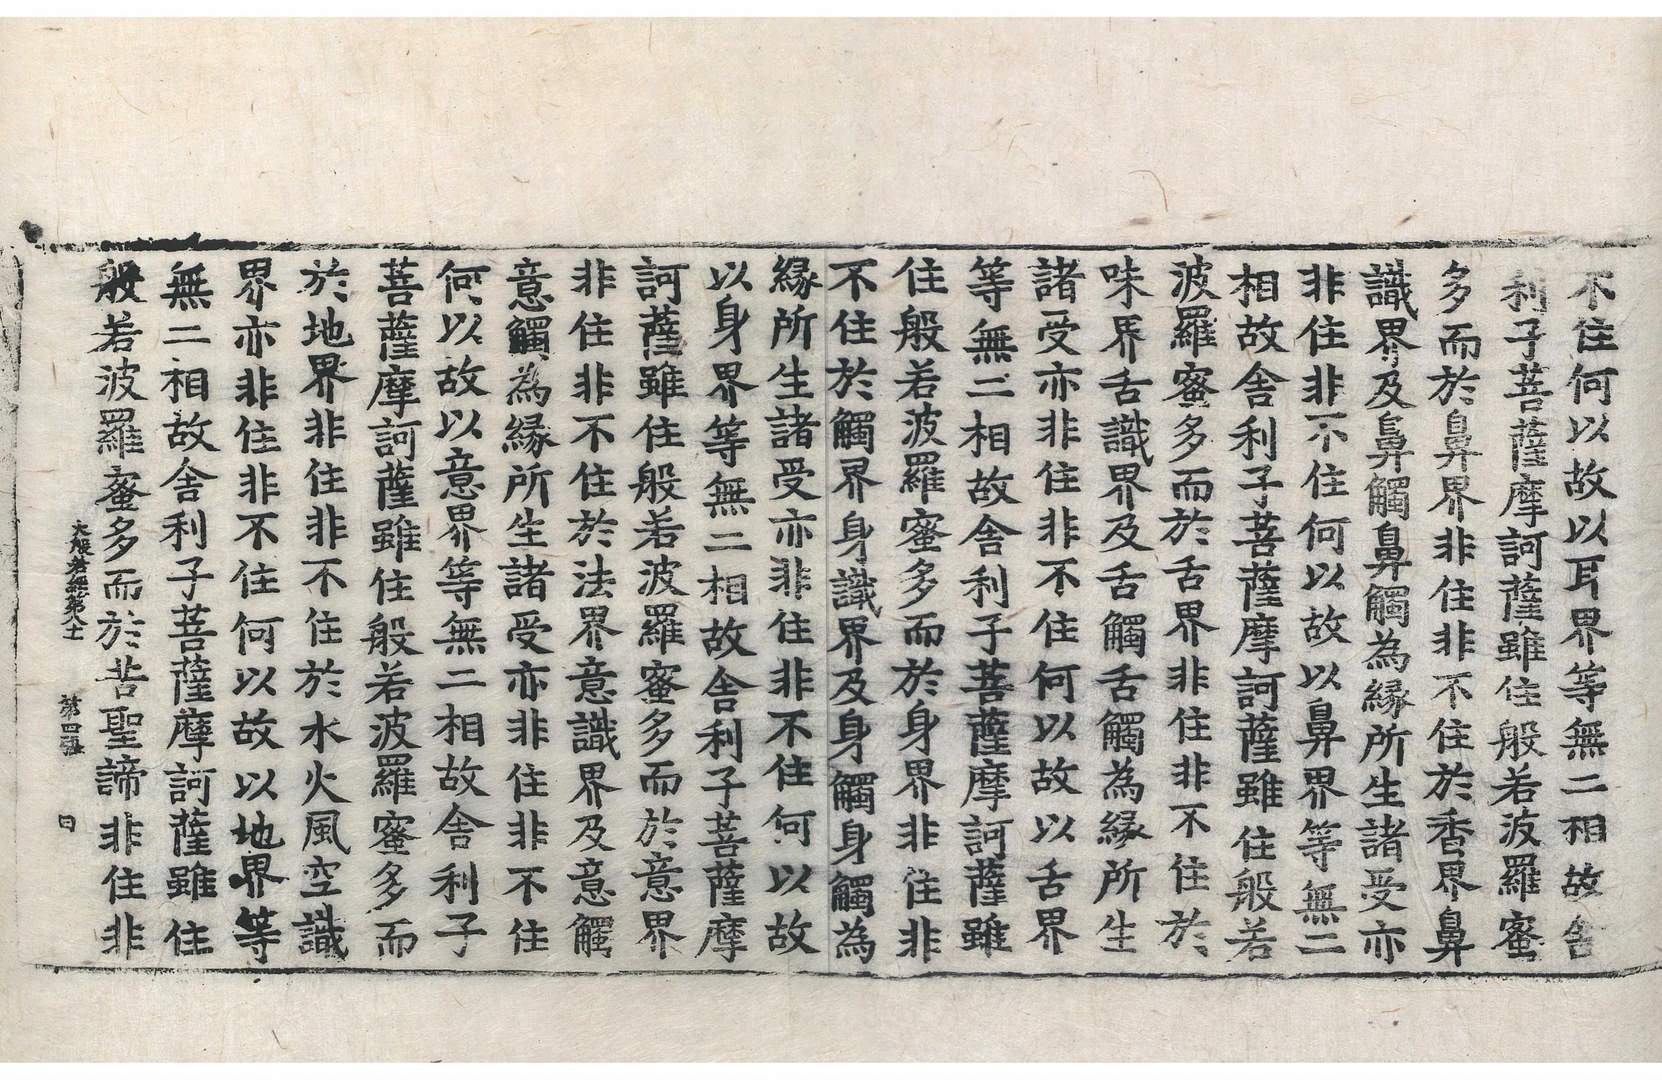 不住何以故以耳界等無二相故舍
利子菩薩摩訶薩雖住般若波羅蜜
多而於鼻界非住非不住於香界鼻
識界及鼻觸鼻觸為緣所生諸受亦
非住非不住何以故以鼻界等無二
相故舍利子菩薩摩訶薩雖住般若
波羅蜜多而於舌界非住非不住於
味界舌識界及舌觸舌觸為緣所生
諸受亦非住非不住何以故以舌界
等無二相故舍利子菩薩摩訶薩雖
住般若波羅蜜多而於身界非住非
不住於觸界身識界及身觸身觸為
緣所生諸受亦非住非不住何以故
以身界等無二相故舍利子菩薩摩
訶薩雖住般若波羅蜜多而於意界
非住非不住於法界意識界及意觸
意觸為緣所生諸受亦非住非不住
何以故以意界等無二相故舍利子
菩薩摩訶薩雖住般若波羅蜜多而
於地界非住非不住於水火風空識
界亦非住非不住何以故以地界等
無二相故舍利子菩薩摩訶薩雖住
般若波羅蜜多而於苦聖諦非住非
大般若經第八十 第四張 日